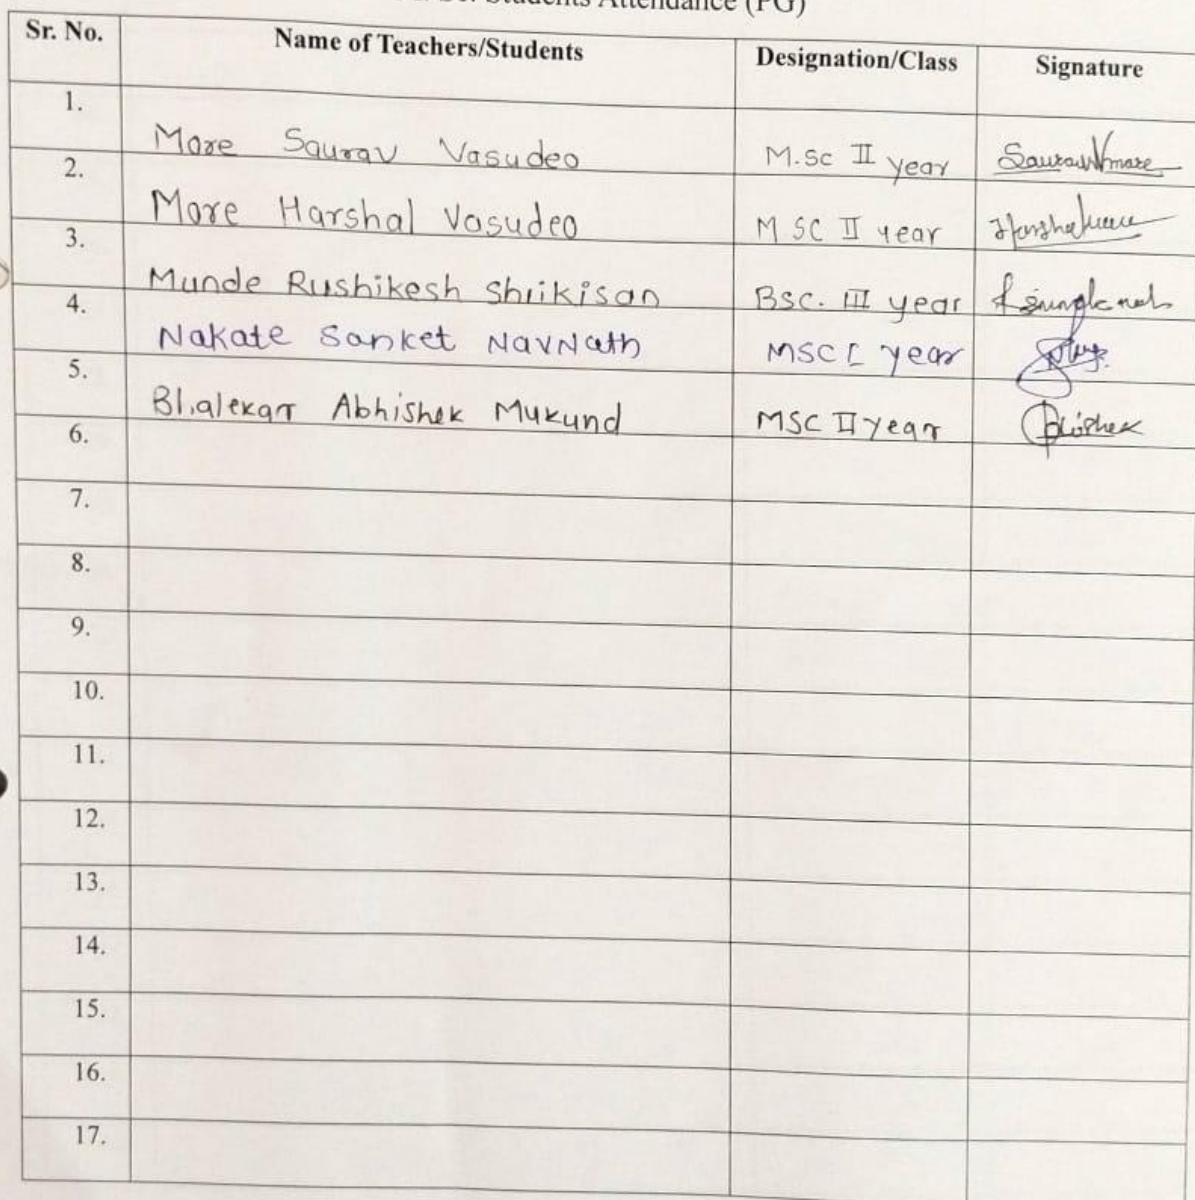 Students Attendance (PG)
Sr. No. Name of Teachers/Students Designation/Class Signature
1. More Saurav Vasudeo M.sc II year SauravVmore
2. More Harshal Vasudeo M SC II year
3. Munde Rushikesh Shrikisan BSC. III year
4. Nakate Sanket NavNath MSC I year
5. Bhalekar Abhishek Mukund MSC II year Abhishek
6.
7.
8.
9.
10.
11.
12.
13.
14.
15.
16.
17.